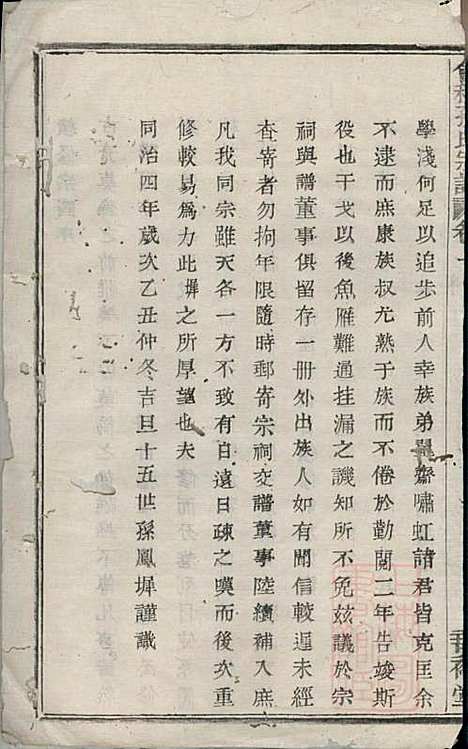 學淺何足以追步前人幸族弟
齋嘯虹諸君皆克匡余
不逮而庶康族叔尤熟于族而不倦於勤閱二年告竣斯
役也干戈以後魚雁難通挂漏之譏知所不免茲議於宗
祠與譜董事俱留存一冊外出族人如有聞信較遲未經
查寄者勿拘年限隨時郵寄宗祠交譜董事陸續補入庶
凡我同宗雖天各一方不致有日遠日疎之嘆而後次重
修較易為力此墀之所厚望也夫
同治四年歲次乙丑仲冬吉旦十五世孫鳳墀謹識